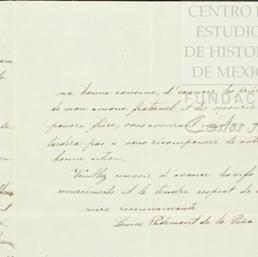 CENTRO D
ESTUDIO
DE HISTOR
DE MEXIC
FUNDAC
Carlos
ma bonne cousine, d'exaucer les priè
de mon amour fraternel et de secourir
pauvre frère, vous assurant
tardera pas à vous récompenser de vot
bonne action.
Veuillez recevoir d'avance les vifs
remerciments et le tendre respect de
nièce reconnaissante
Louise de la Peña